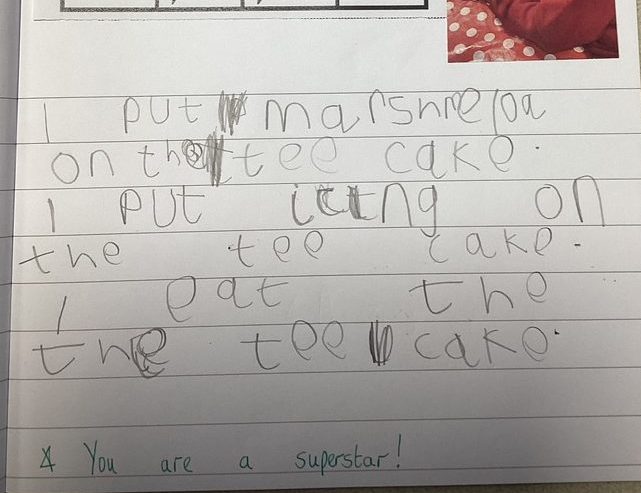 I put marshmeloa
on the tee cake.
I put icing on
the tee cake.
I eat the
the tee cake.
You are a superstar!